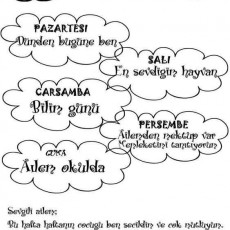 PAZARTESİ
Dünden bugüne ben
SALI
En sevdiğin hayvan
ÇARŞAMBA
Bilim günü
PERŞEMBE
Ailenden mektup var
Memleketini tanıyorum
CUMA
Ailen okulda
Sevgili ailem;
Bu hafta haftanın çocuğu ben seçildim ve çok mutluyum.